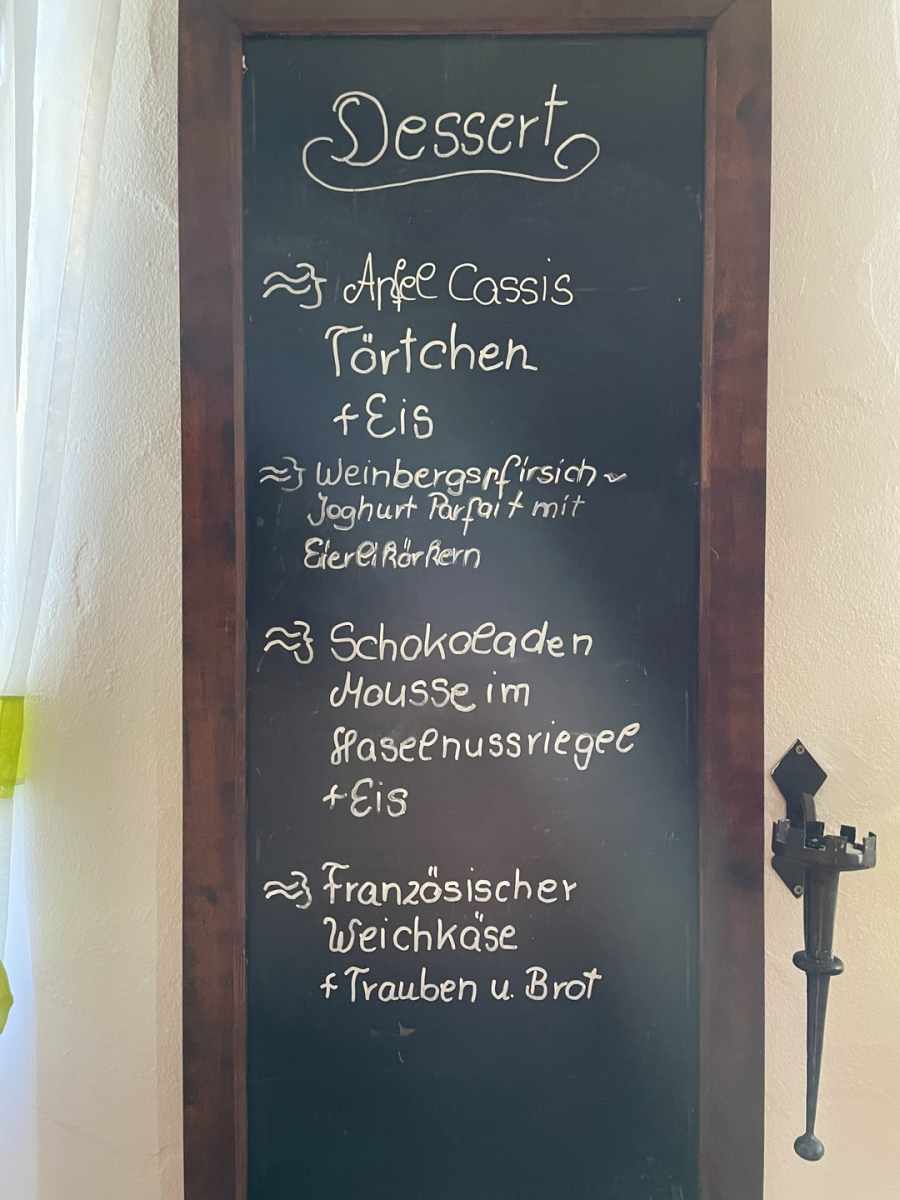 Dessert
Apfel Cassis
Törtchen
+ Eis
Weinbergspfirsich ~
Joghurt Parfait mit
Schokoladen
Mousse im
Haselnussriegel
+ Eis
Französischer
Weichkäse
+ Trauben u. Brot